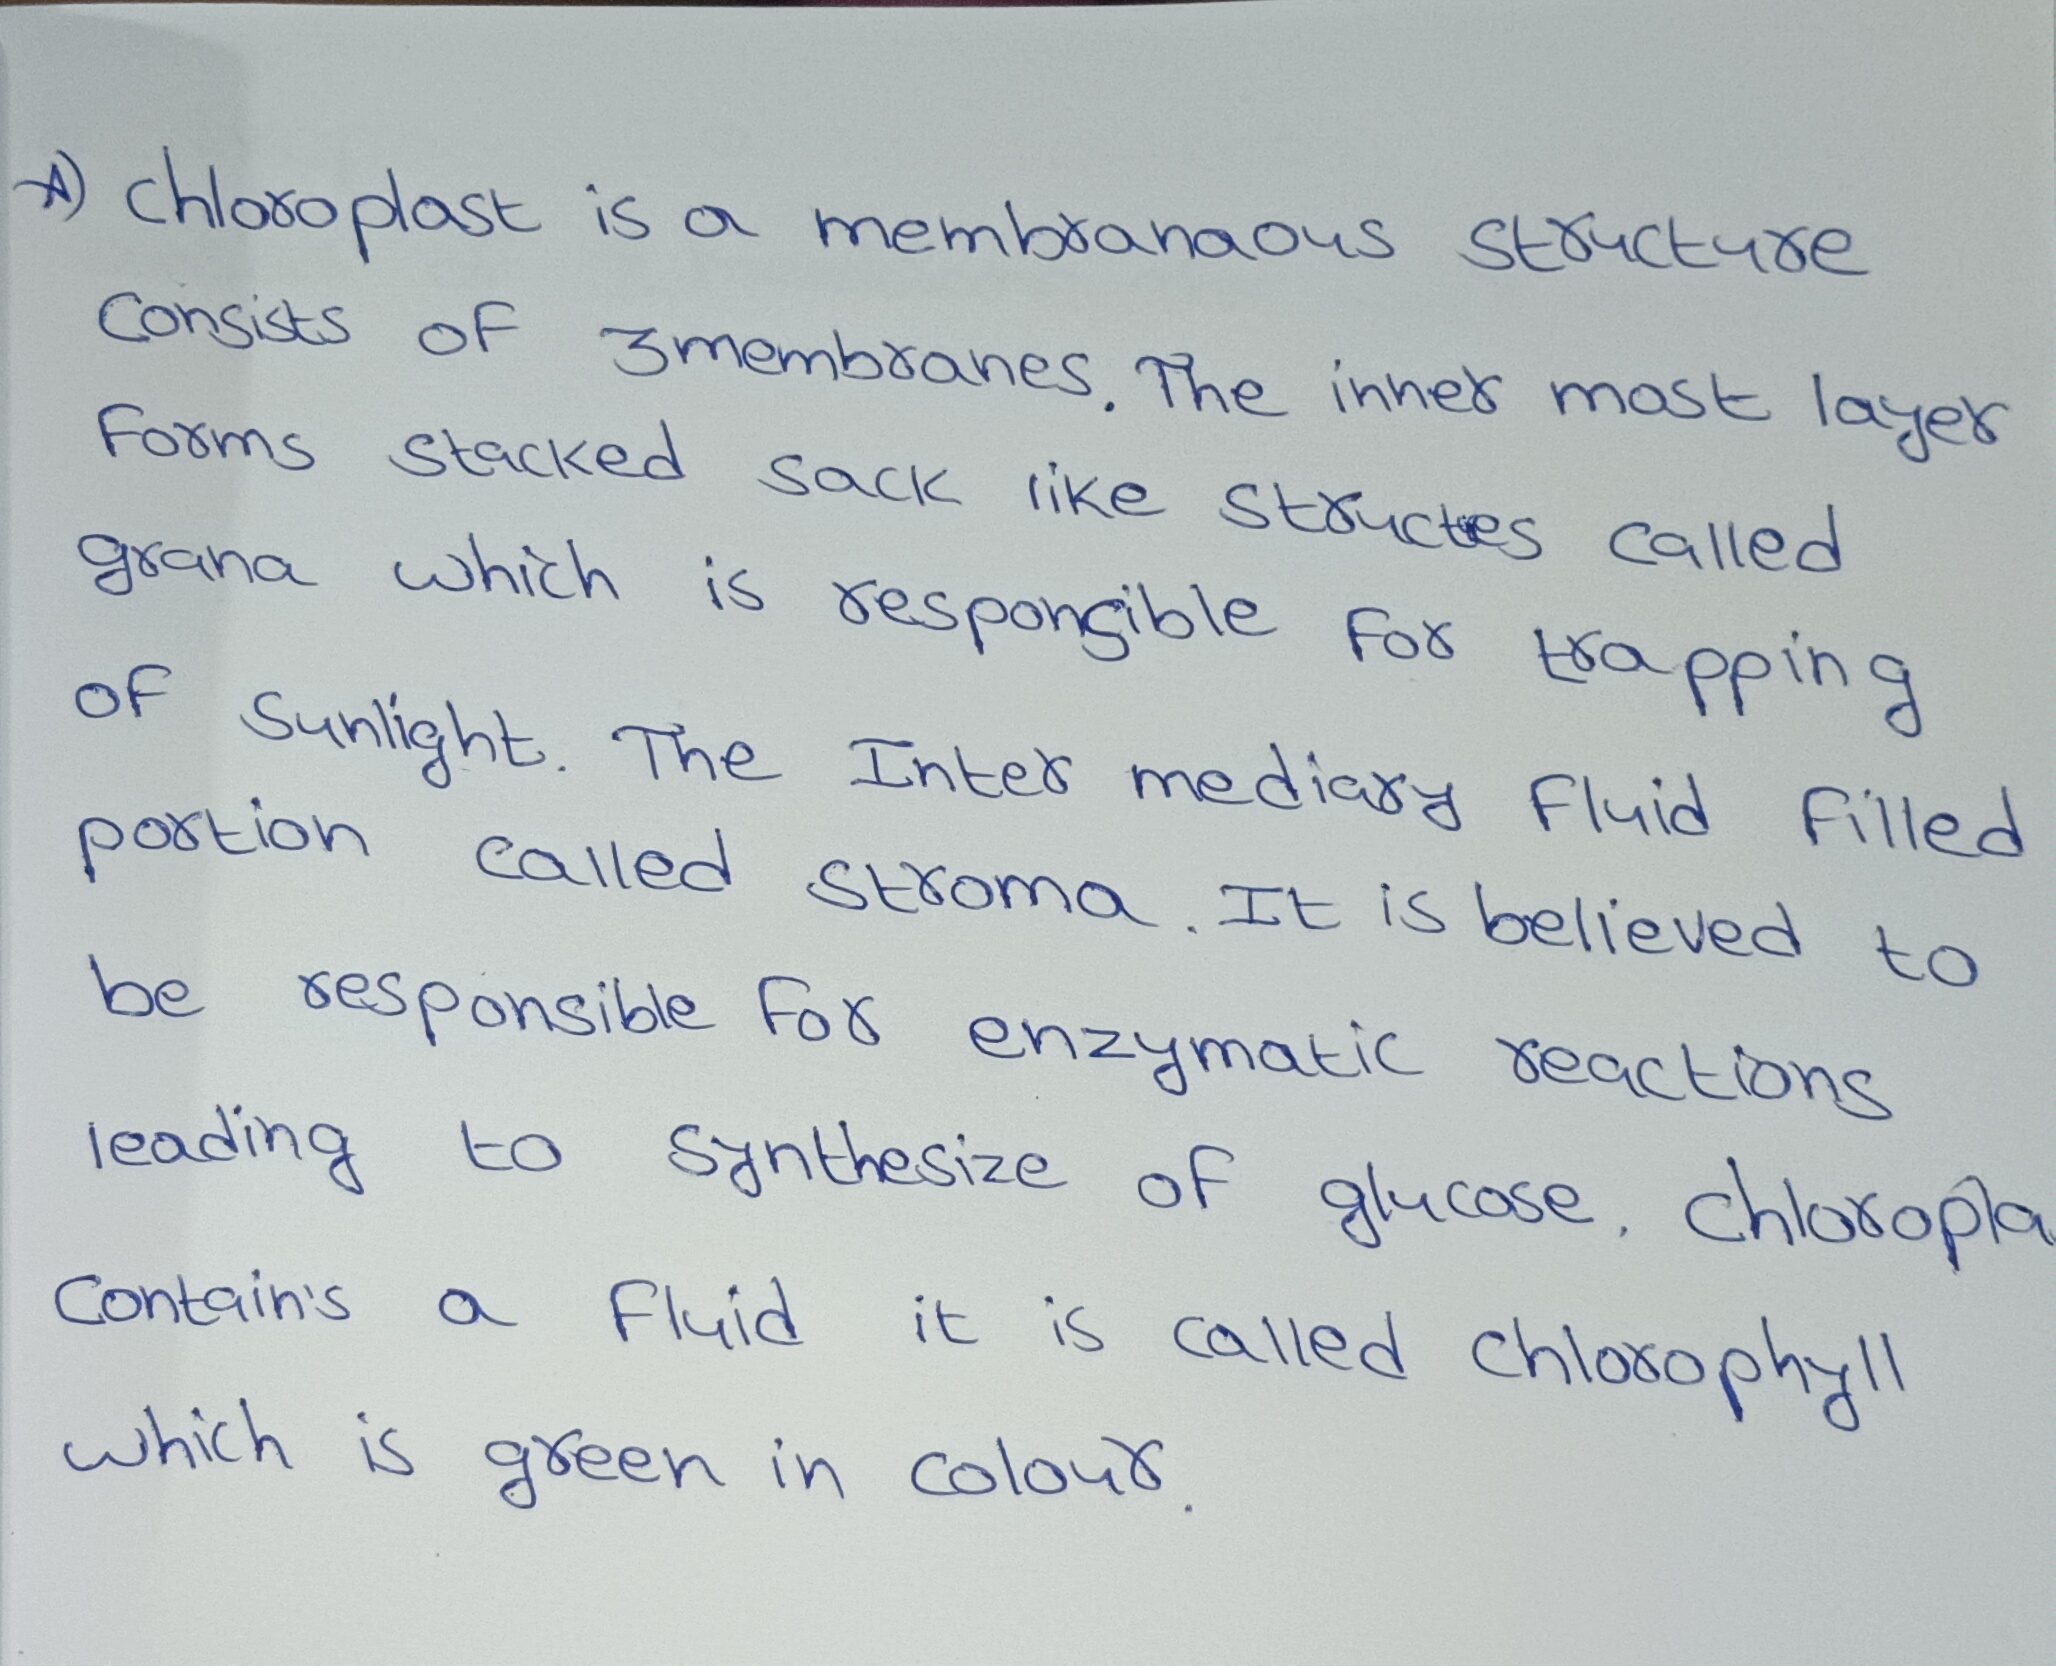 A) chloroplast is a membranaous structure
Consists of 3membranes. The inner most layer
forms stacked sack like structes called
grana which is responsible for trapping
of Sunlight. The Inter mediary fluid filled
portion called stroma. It is believed to
be responsible for enzymatic reactions
leading to synthesize of glucose. Chloropla
Contain's a fluid it is called chlorophyll
which is green in colour.